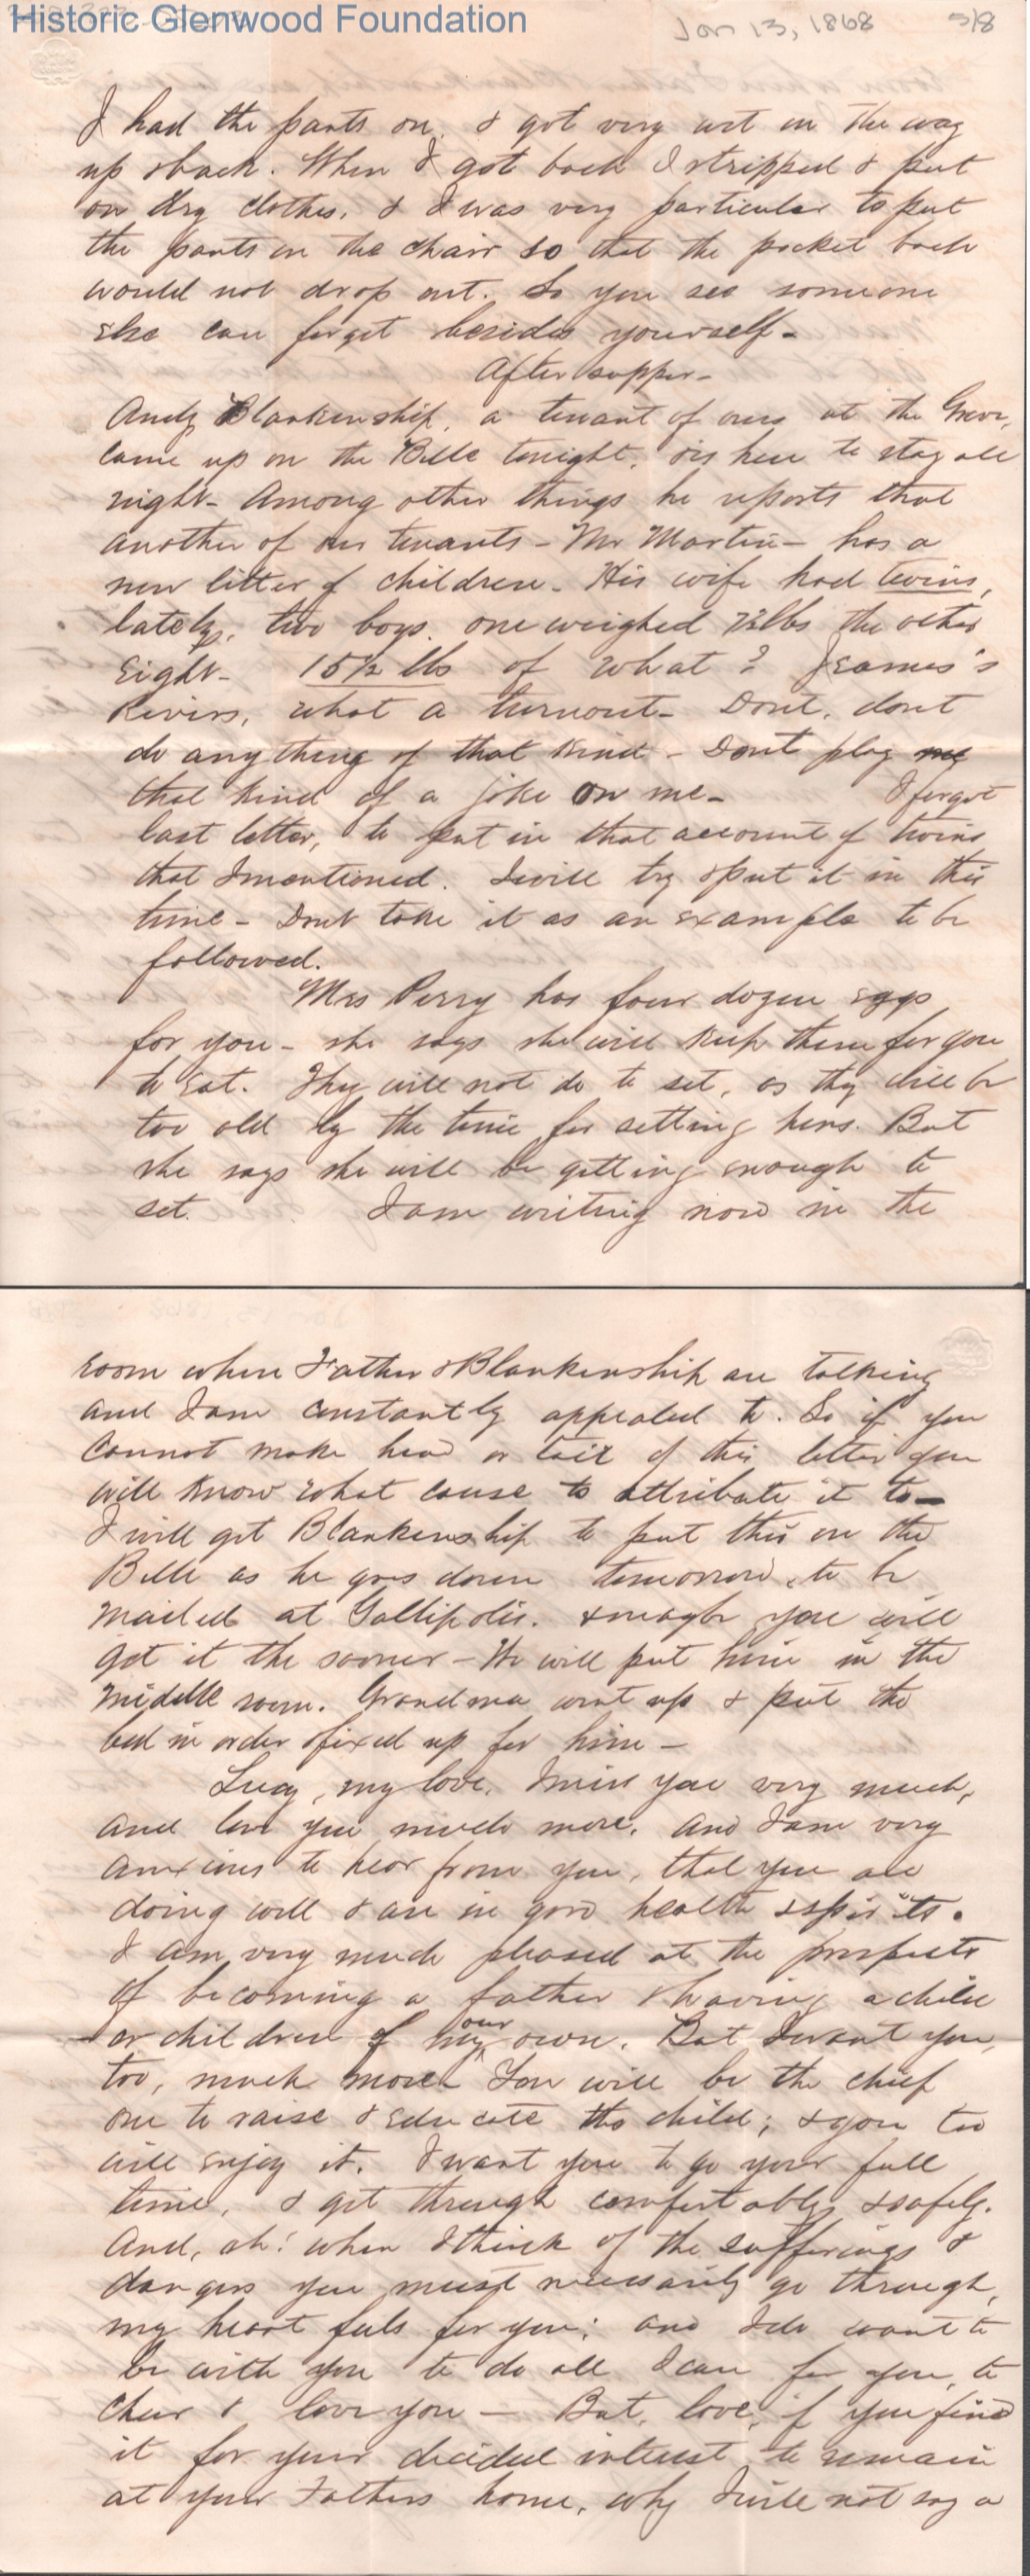 Historic Glenwood Foundation
Jan 13, 1868 5/8
I had the pants on, & got very wet on the way
up & back. When I got back I stripped & put
on dry clothes, & I was very particular to put
the pants on the chair so that the pocket book
would not drop out. So you see someone
else can forget besides yourself -
After supper -
Andy Blankenship, a tenant of ours at the Grove,
came up on the Belle tonight, & is here to stay all
night - Among other things he reports that
another of our tenants - Mr Martin - has a
new litter of children - His wife had twins,
lately, two boys. one weighed 7½lbs the other
Eight - 15½ lbs of what? Jeames's
Rivers, what a turnout - Dont, dont
do anything of that kind - Dont play me
that kind of a joke on me - I forgot
last letter, to put in that account of twins
that I mentioned. I will try & put it in this
time - Dont take it as an example to be
followed.
Mrs Perry has four dozen eggs
for you - she says she will keep them for you
to Eat. They will not do to set, as they will be
too old by the time for setting hens. But
she says she will be getting enough to
set. I am writing now in the
room where Father & Blankenship are talking
and I am constantly appealed to. So if you
cannot make head or tail of this letter you
will know what cause to attribute it to -
I will get Blankenship to put this on the
Belle as he goes down tomorrow, to be
mailed at Gallipolis. & maybe you will
get it the sooner - We will put him in the
middle room. Grandma went up & put the
bed in order & fixed up for him -
Lucy, my love, I miss you very much,
and love you much more, and I am very
anxious to hear from you, that you are
doing well & are in good health & spirits.
I am very much pleased at the prospects
of becoming a father & having a child
or children of my our own. But I want you,
too, much more - You will be the chief
one to raise & educate the child; & you too
will enjoy it. I want you to go your full
time, & get through comfortably & safely.
And, oh! when I think of the sufferings &
dangers you must necessarily go through,
my heart feels for you; and I do want to
be with you to do all I can for you, to
cheer & love you - But, love, if you find
it for your decided interest to remain
at your Fathers home, why I will not say a